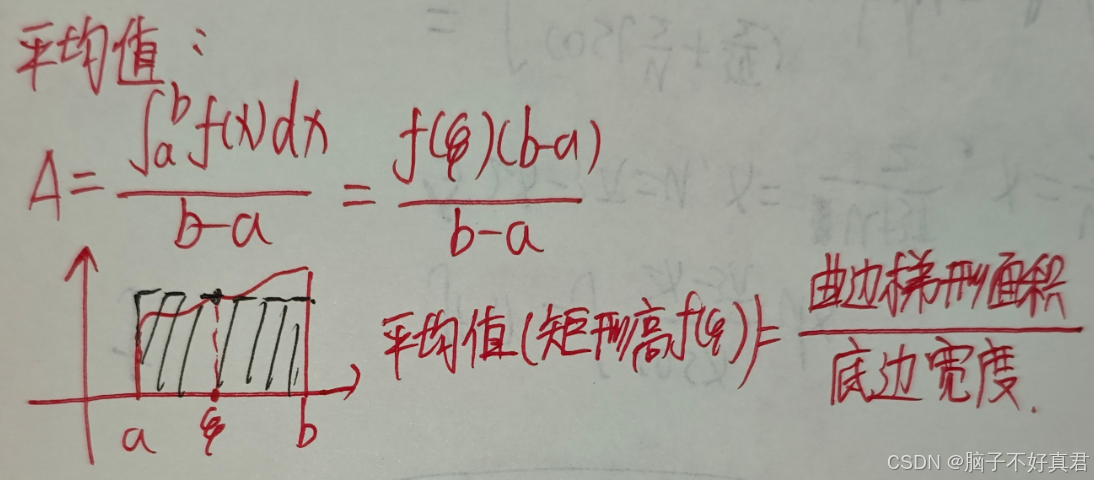 平均值：
A = ∫_a^b f(x)dx / (b-a) = f(ξ)(b-a) / (b-a)
平均值(矩形高f(ξ)) = 曲边梯形面积 / 底边宽度.
a ξ b
CSDN @脑子不好真君